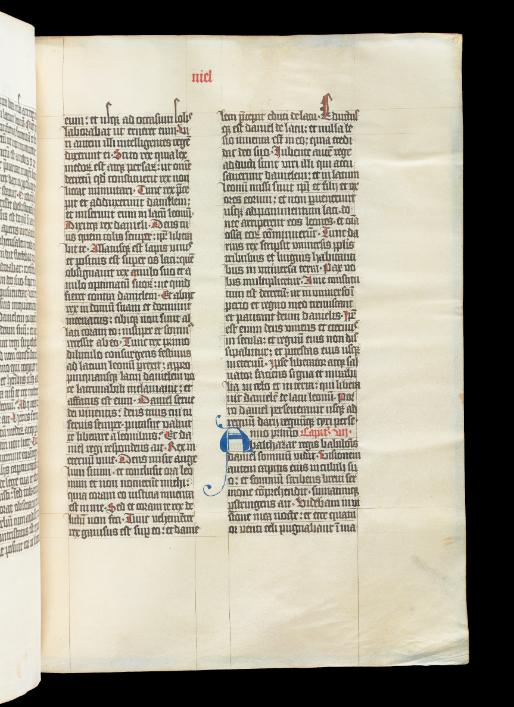 niel
eum: et usq; ad occasum solis
laborabat ut erueret eum. Vi
ri autem illi intelligentes regē
dixerunt ei. Scito rex quia lex
medoꝝ est atqꝫ persaꝝ: ut omē
decretū qđ constituerit rex non
liceat inmutari. Tunc rex p̄ce
pit et adduxerunt danielem:
et miserunt eum in lacū leonū.
Dixitqꝫ rex danieli. Deus tu
us quem colis semper: ip̄e libera
bit te. Allatusqꝫ est lapis unus
et positus est super os laci: quē
obsignauit rex anulo suo et a
nulo optimatū suoꝝ: ne quid
fieret contra danielem. Et abiit
rex in domū suam et dormiuit
incenatus: cibiqꝫ non sunt al
lati coram eo: insuper et somn9
recessit ab eo. Tunc rex primo
diluculo consurgens festinus
ad lacum leonū perrexit: appro
pinquansqꝫ lacui danielem uo
ce lacrimabili inclamauit: et
affatus est eum. Daniel serue
dei uiuentis: deus tuus cui tu
seruis semper: putasne ualuit
te liberare a leonibus? Et da
niel regi respondens ait. Rex in
eternū uiue. Deus meus ange
lum suum: et conclusit ora leo
num et non nocuerūt michi:
quia coram eo iusticia inuenta
est in me. Sed et coram te rex de
lictū non feci. Tunc uehemēter
rex gauisus est sup eo: et danie
lem p̄cepit educi de lacu. Eductus
qꝫ est daniel de lacu: et nulla le
sio inuenta est in eo: quia credi
dit deo suo. Iubente autē rege
adducti sunt uiri illi qui accu
sauerant danielem: et in lacum
leonū missi sunt ip̄i et filij et ux
ores eorum: et non puenerunt
usqꝫ ad pauimentum laci: do
nec arriperent eos leones: et om̄a
ossa eoꝝ cōminuerūt. Tunc da
rius rex scripsit uniuersis pp̄lis
tribubus et linguis habitanti
bus in uniuersa terra. Pax uo
bis multiplicetur. A me constitu
tum est decretū: ut in uniuerso ī
perio et regno meo tremiscant
et paueant deum danielis. Ip̄e
est enim deus uiuens et eternus
in secula: et regnū eius non dis
sipabitur: et potestas eius usqꝫ
in eternū. Ipse liberator atqꝫ sal
uator faciens signa et mirabi
lia in celo et in terra: qui libera
uit danielē de lacu leonū. Por
ro daniel perseuerauit usqꝫ ad
regnū darij regnūqꝫ cyri perse
Anno primo Capitl'm vii.
balthasar regis babilonis
daniel somniū uidit. Visionem
autem capitis eius in cubili su
o: et somniū scribens breui ser
mone cōprehendit: sumatimqꝫ
pstringens ait. Videbam in ui
sione mea nocte: et ecce quatu
or uenti celi pugnabant ī ma